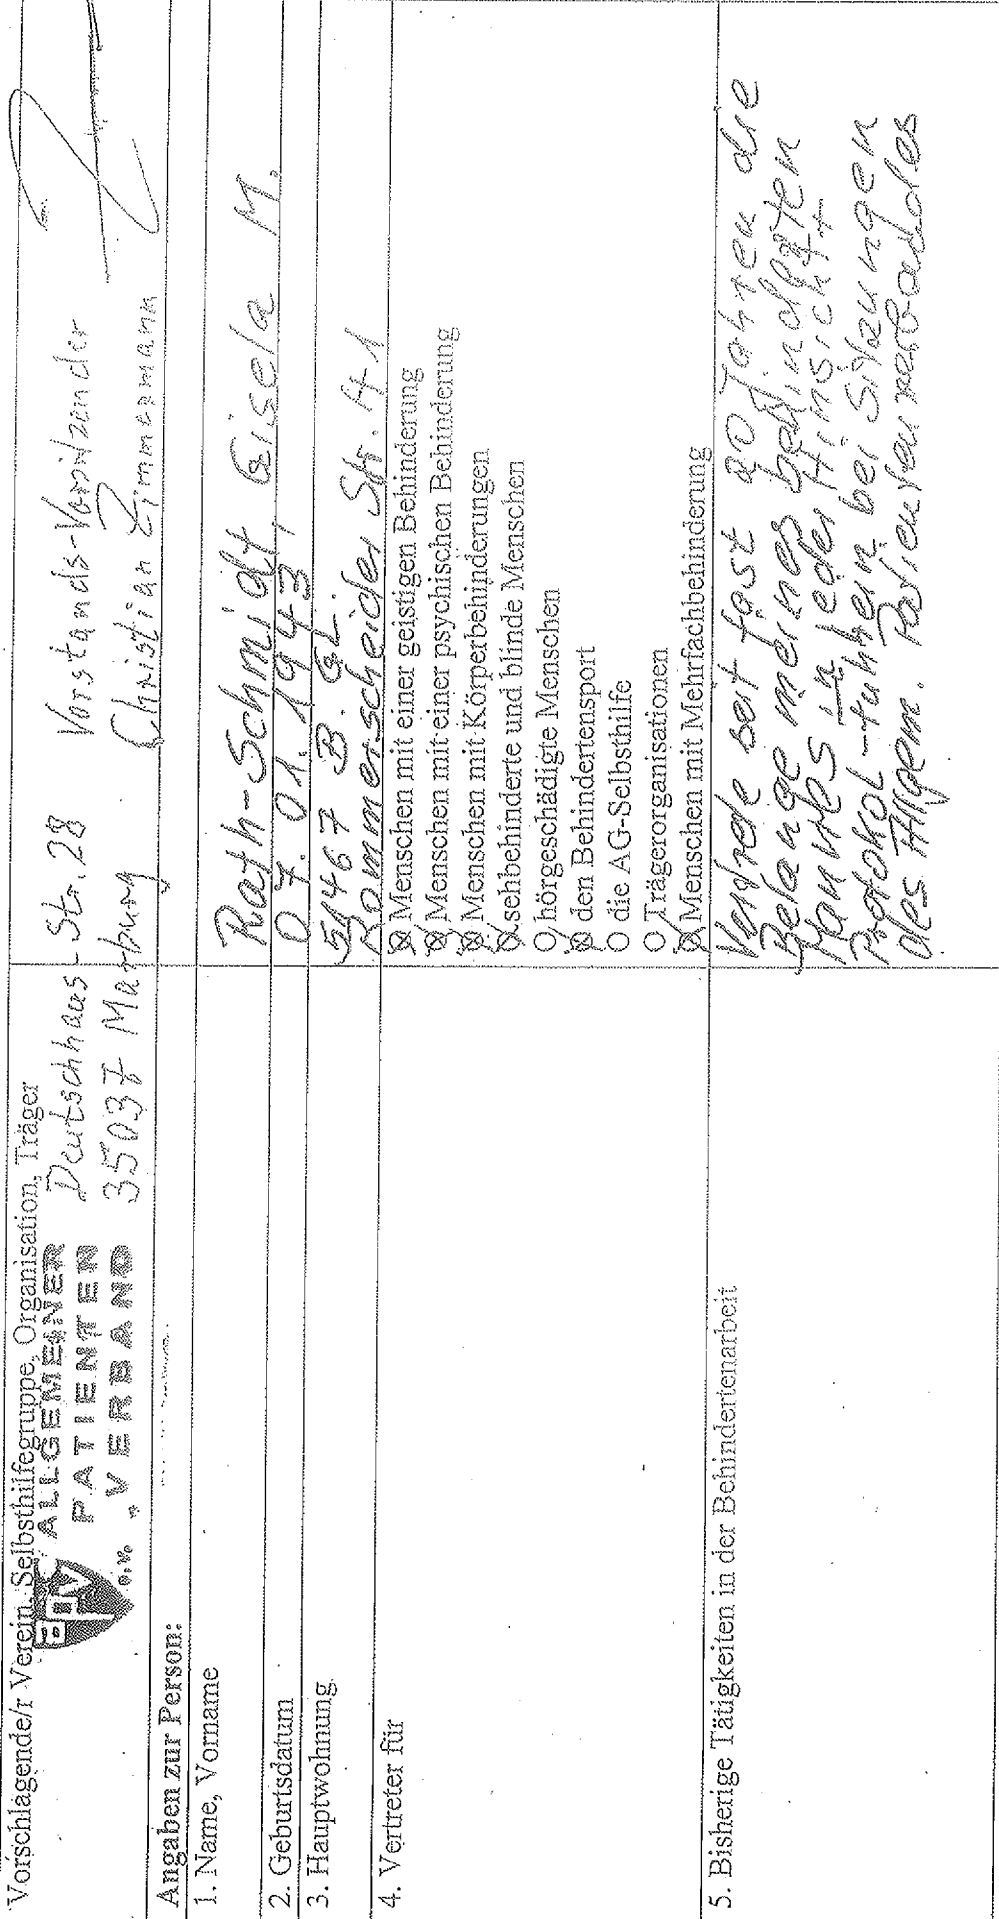 Vorschlagende/r Verein, Selbsthilfegruppe, Organisation, Träger
apv ALLGEMEINER PATIENTEN VERBAND e.V.
Deutschhaus-Str. 28 Vorstands-Vorsitzender
35037 Marburg Christian Zimmermann
Angaben zur Person:
1. Name, Vorname
Rath-Schmidt, Gisela M.
2. Geburtsdatum
07.01.1943
3. Hauptwohnung
51467 B. GL.
Dommerscheider Str. 41
4. Vertreter für
Menschen mit einer geistigen Behinderung
Menschen mit einer psychischen Behinderung
Menschen mit Körperbehinderungen
sehbehinderte und blinde Menschen
hörgeschädigte Menschen
den Behindertensport
O die AG-Selbsthilfe
O Trägerorganisationen
Menschen mit Mehrfachbehinderung
5. Bisherige Tätigkeiten in der Behindertenarbeit
seit fast 20 Jahren die
Belange meines behinderten
Mannes in jeder Hinsicht
Protokol-führerin bei Sitzungen
des Allgem. Patientenverbandes